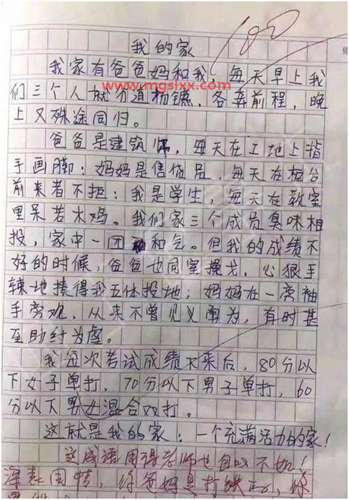 100
我的家
www.mgslxx.com
我家有爸爸妈和我，每天早上我
们三个人就分道扬镳，各奔前程，晚
上又殊途同归。
爸爸是建筑师，每天在工地上指
手画脚；妈妈是售货员，每天在柜台
前来者不拒；我是学生，每天在教室
里呆若木鸡。我们家三个成员臭味相
投，家中一团和气。但我的成绩不
好的时候，爸爸也同室操戈，心狠手
辣地揍得我五体投地；妈妈在一旁袖
手旁观，从来不曾见义勇为，有时甚
至助纣为虐。
我每次考试成绩下来后，80分以
下女子单打，70分以下男子单打，60
分以下男女混合双打。
这就是我的家：一个充满活力的家！
这成语用得老师也自以不如！
深表同情，你爸妈是打球的，你